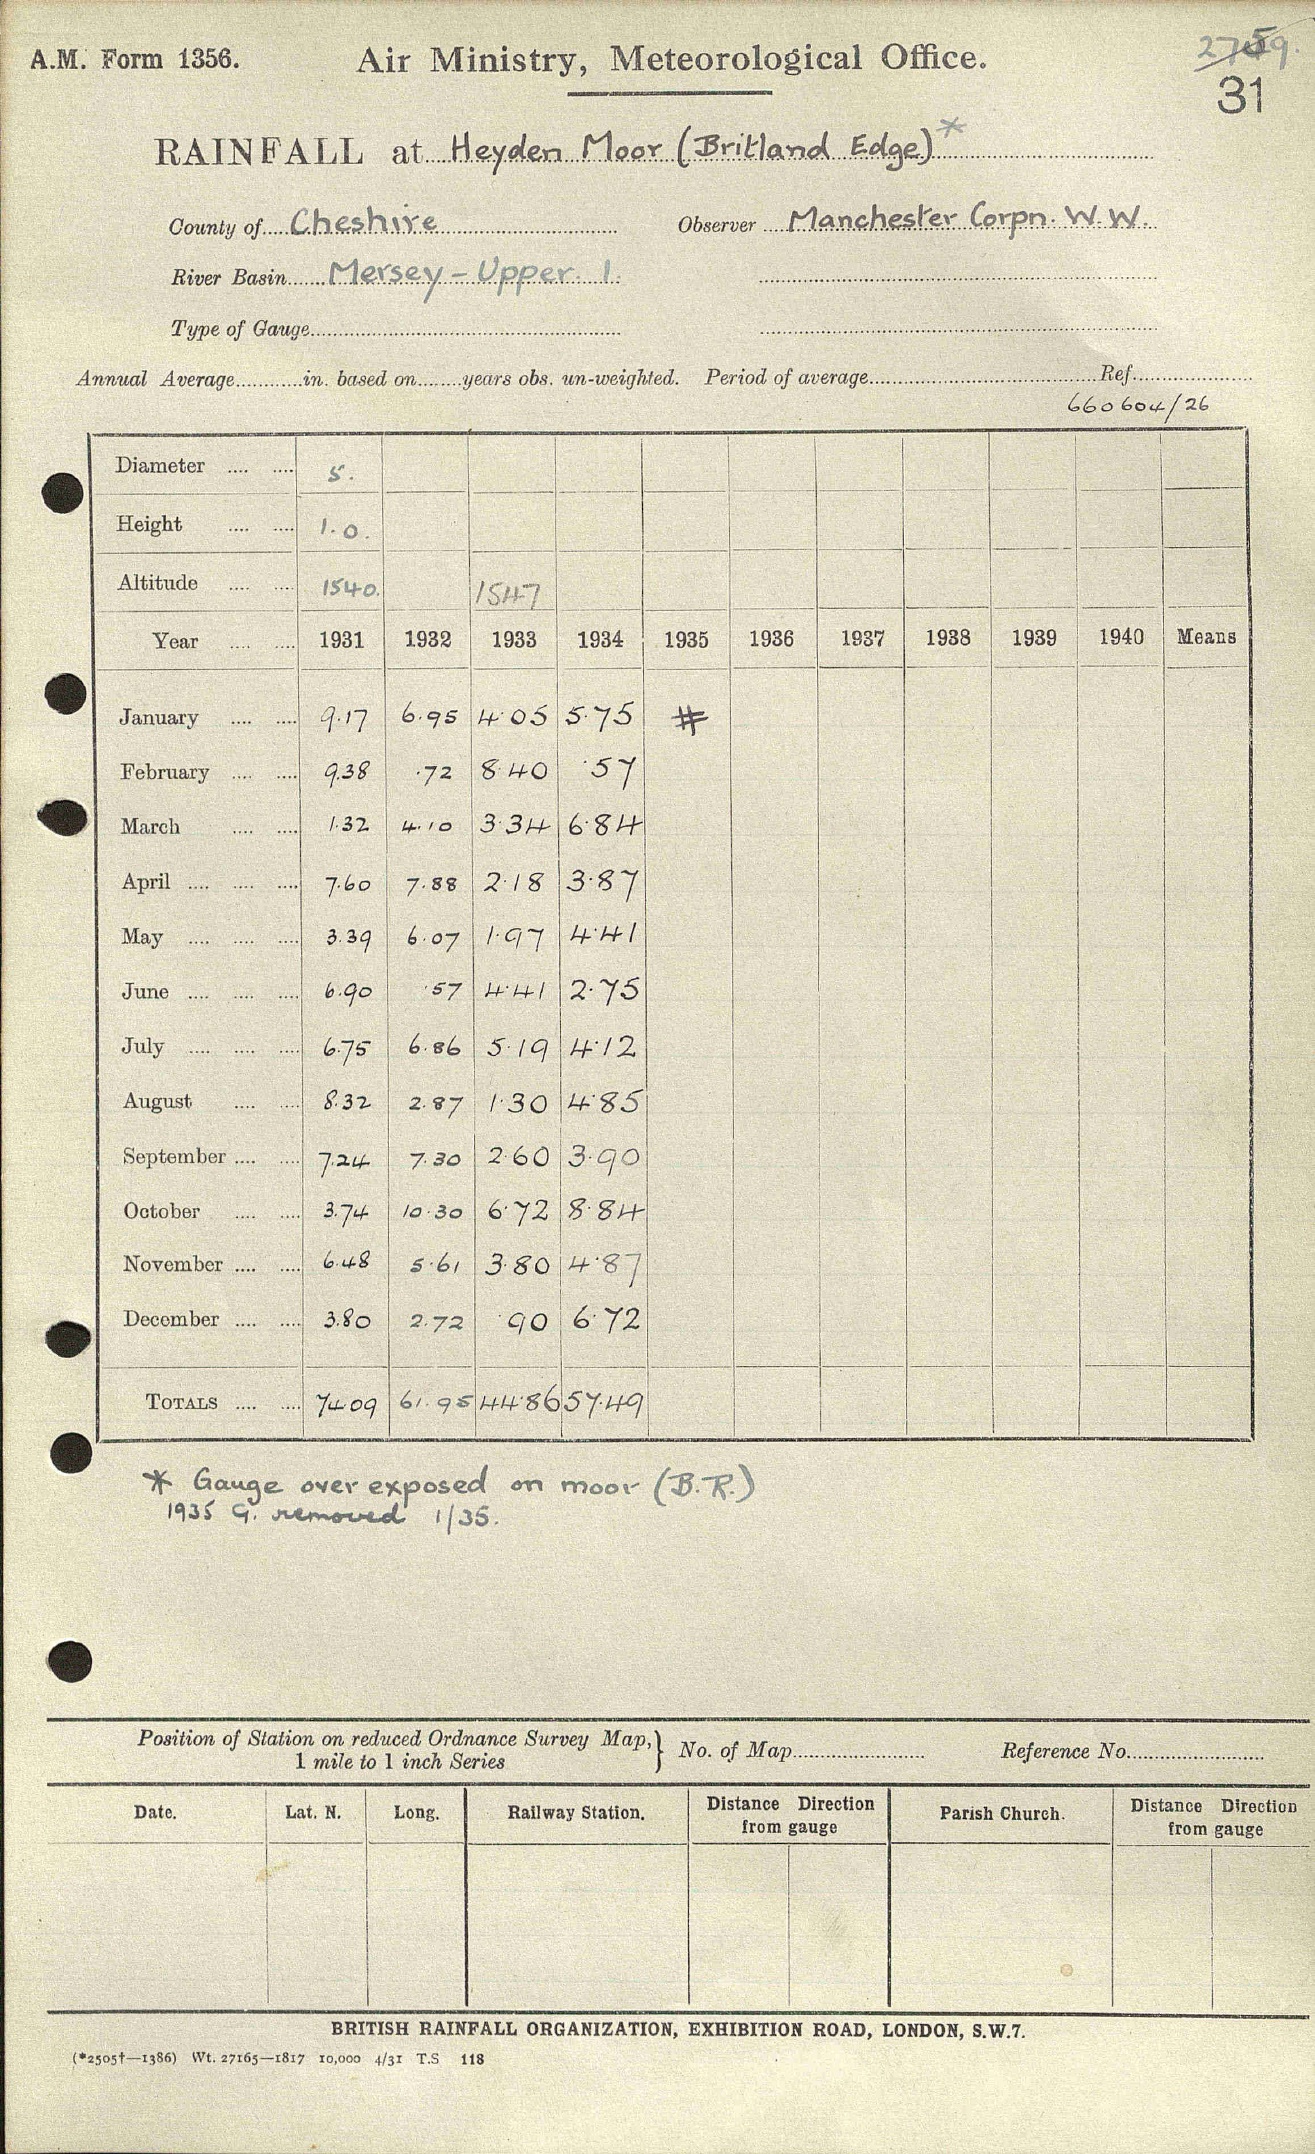 A.M. Form 1356.
Air Ministry, Meteorological Office.
31
RAINFALL at Heyden Moor (Britland Edge)*
County of Cheshire Observer Manchester Corpn. W.W.
River Basin Mersey - Upper. 1.
Type of Gauge
Annual Average in. based on years obs. un-weighted. Period of average Ref.
660604/26
Diameter 5.
Height 1.0.
Altitude 1540. 1547
Year 1931 1932 1933 1934 1935 1936 1937 1938 1939 1940 Means
January 9.17 6.95 4.05 5.75 #
February 9.38 .72 8.40 .57
March 1.32 4.10 3.34 6.84
April 7.60 7.88 2.18 3.87
May 3.39 6.07 1.97 4.41
June 6.90 .57 4.41 2.75
July 6.75 6.86 5.19 4.12
August 8.32 2.87 1.30 4.85
September 7.24 7.30 2.60 3.90
October 3.74 10.30 6.72 8.84
November 6.48 5.61 3.80 4.87
December 3.80 2.72 .90 6.72
TOTALS 74.09 61.95 44.86 57.49
* Gauge over exposed on moor (B.R.)
1935 G. removed 1/35.
Position of Station on reduced Ordnance Survey Map, } No. of Map Reference No.
1 mile to 1 inch Series
Date. Lat. N. Long. Railway Station. Distance Direction from gauge Parish Church. Distance Direction from gauge
BRITISH RAINFALL ORGANIZATION, EXHIBITION ROAD, LONDON, S.W.7.
(*2505†—1386) Wt. 27165—1817 10,000 4/31 T.S 118